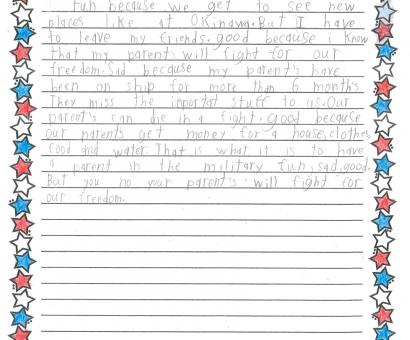 fun because we get to see new
places like at Okinawa. But I have
to leave my friends. good because i know
that my parent will fight for our
freedom. Sad because my parent's have
been on ship for more than 6 months.
They miss the inportat stuff to us. Our
parent's can die in a fight. good because
our parents get money for a house, clothes,
food and water. That is what it is to have
a parent in the military fun, sad, good.
But you no your parent's will fight for
our freedom.